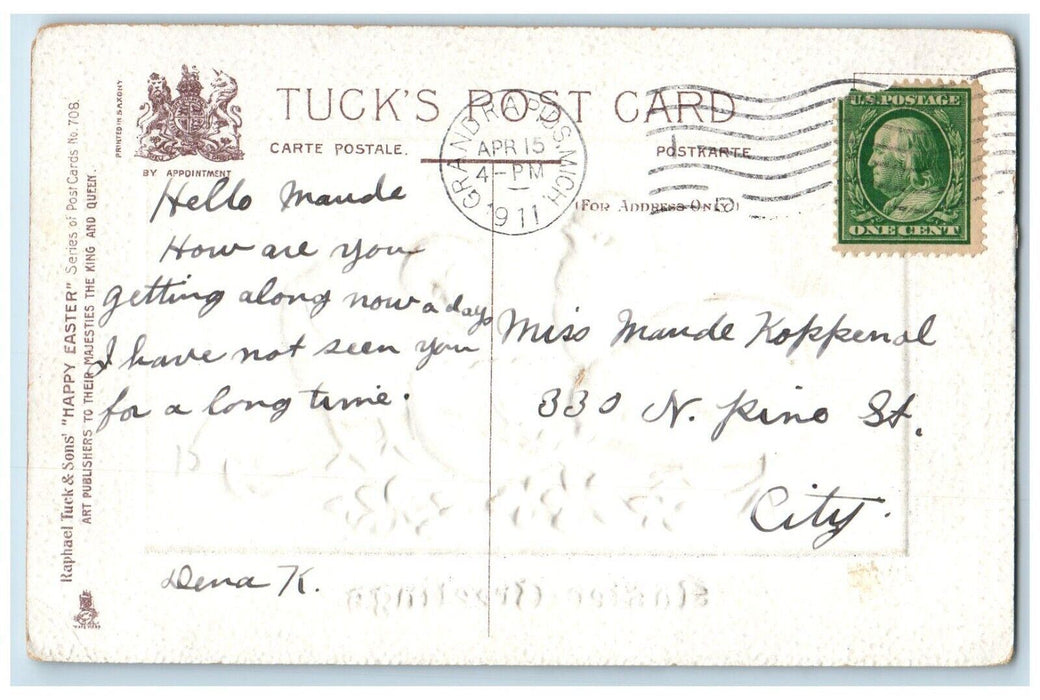 TUCK'S POST CARD
CARTE POSTALE.
POSTKARTE
(FOR ADDRESS ONLY)
BY APPOINTMENT
PRINTED IN SAXONY
Raphael Tuck & Sons' "HAPPY EASTER" Series of Post Cards No. 708.
ART PUBLISHERS TO THEIR MAJESTIES THE KING AND QUEEN.
GRAND RAPIDS, MICH.
APR 15
4-PM
1911
U.S. POSTAGE
ONE CENT
Hello Maude
How are you
getting along now a days
I have not seen you
for a long time.
Dena K.
Miss Maude Koppenol
330 N. Pine St.
City.
Easter Greetings